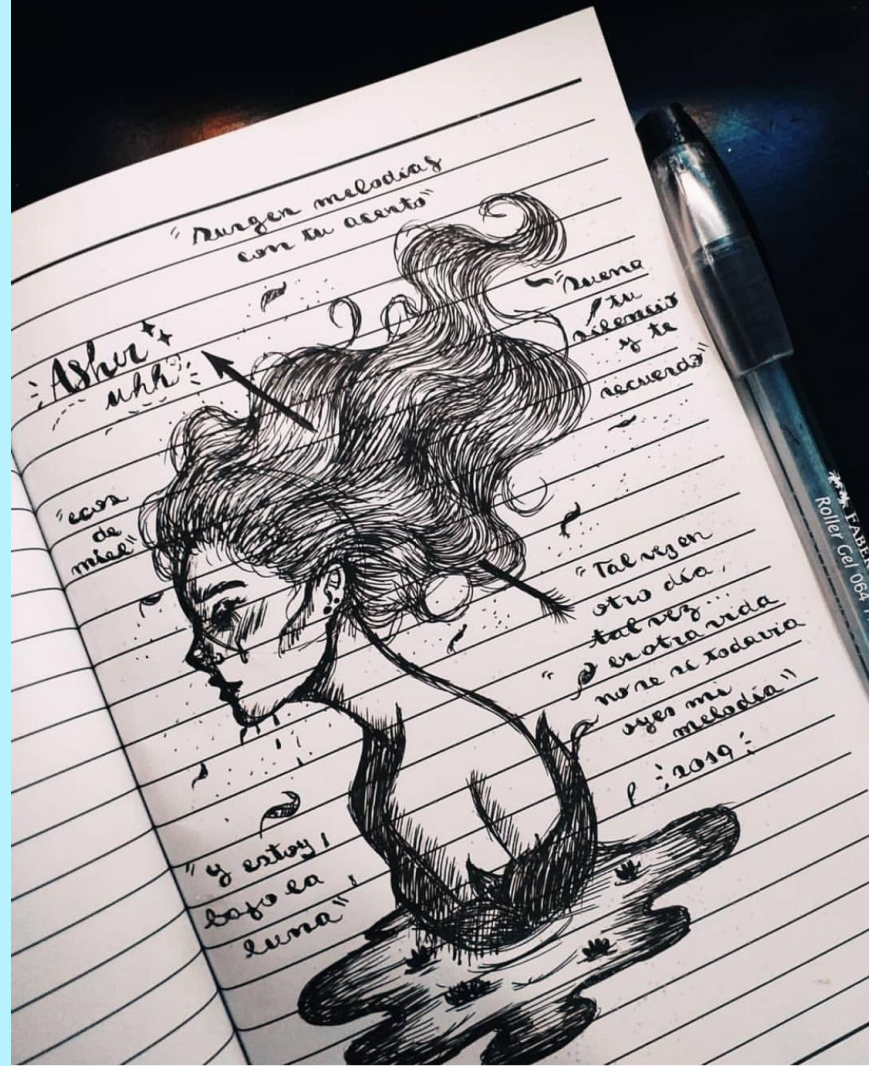 "Surgen melodías
con tu acento"
"Suena
tu
silencio
y te
recuerdo"
Ashir
uhh
"ecos
de
miel"
"Tal vez en
otro día,
tal vez...
" en otra vida
no se si todavia
oyes mi
melodía"
2019
"y estoy
bajo la
luna"
FABER
Roller Gel 064